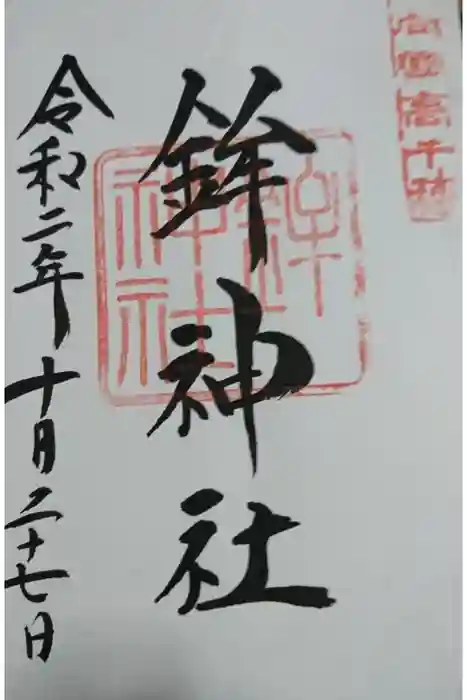 高千穂
鉾神社
鉾
神社
令和二年十月二十七日